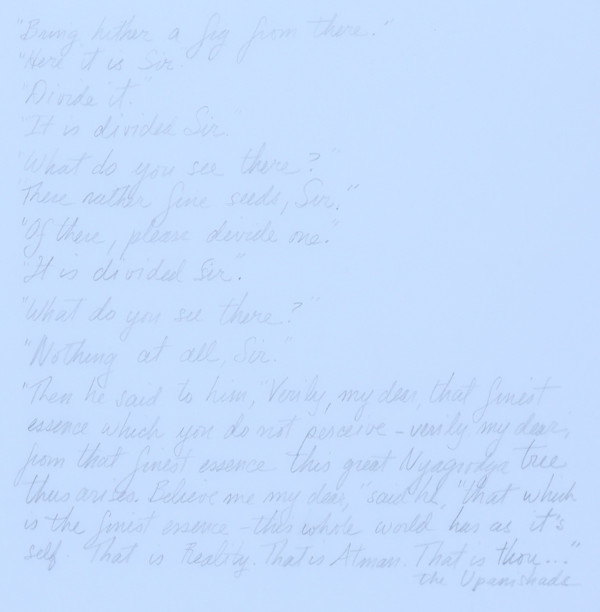 "Bring hither a fig from there."
"Here it is Sir"
"Divide it."
"It is divided Sir."
"What do you see there?"
These rather fine seeds, Sir."
"Of these, please divide one."
"It is divided Sir".
"What do you see there?"
"Nothing at all, Sir."
"Then he said to him, "Verily, my dear, that finest
essence which you do not perceive - verily my dear,
from that finest essence this great Nyagrodya tree
thus arises. Believe me my dear," said he, "that which
is the finest essence - this whole world has as it's
self. That is Reality. That is Atman. That is thou..."
The Upanishads